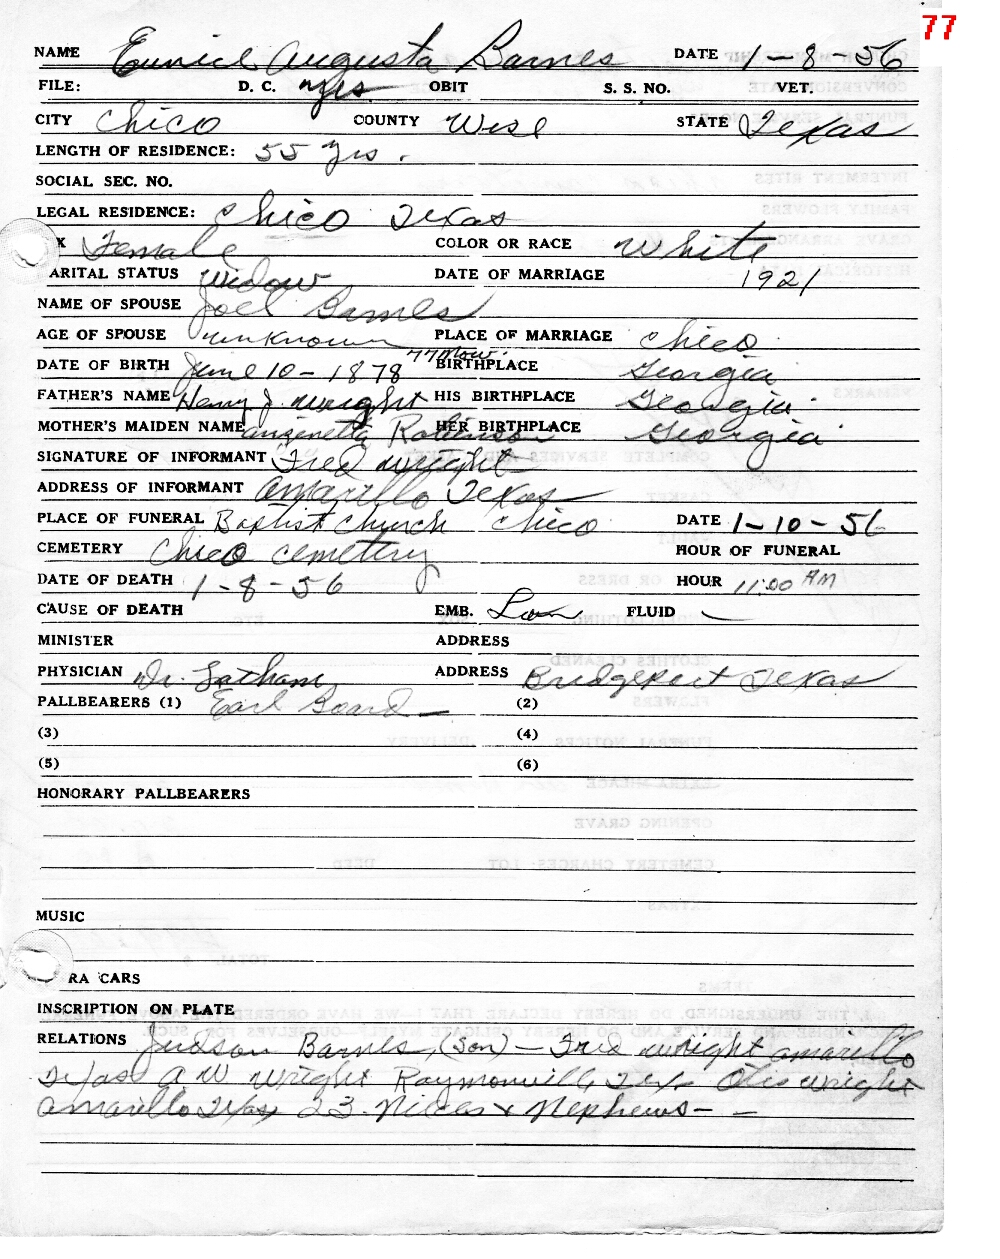 77
NAME Eunice Augusta Barnes DATE 1-8-56
FILE: D. C. yes OBIT S. S. NO. VET.
CITY Chico COUNTY Wise STATE Texas
LENGTH OF RESIDENCE: 55 yrs.
SOCIAL SEC. NO.
LEGAL RESIDENCE: Chico Texas
X Female COLOR OR RACE White
ARITAL STATUS Widow DATE OF MARRIAGE 1921
NAME OF SPOUSE Joel Barnes
AGE OF SPOUSE unknown PLACE OF MARRIAGE Chico
DATE OF BIRTH June 10-1878 77 BIRTHPLACE Georgia
FATHER'S NAME Henry J. Wright HIS BIRTHPLACE Georgia
MOTHER'S MAIDEN NAME Robinson HER BIRTHPLACE Georgia
SIGNATURE OF INFORMANT Fred Wright
ADDRESS OF INFORMANT Amarillo Texas
PLACE OF FUNERAL Baptist Church Chico DATE 1-10-56
CEMETERY Chico Cemetery HOUR OF FUNERAL
DATE OF DEATH 1-8-56 HOUR 11:00 AM
CAUSE OF DEATH EMB. FLUID
MINISTER ADDRESS
PHYSICIAN Dr. Latham ADDRESS Bridgeport Texas
PALLBEARERS (1) Earl Board (2)
(3) (4)
(5) (6)
HONORARY PALLBEARERS
MUSIC
RA CARS
INSCRIPTION ON PLATE
RELATIONS Judson Barnes, (son) - Fred Wright Amarillo
Texas A W Wright Raymonville Tex Otis Wright
Amarillo Texas 23 Nieces & Nephews - -